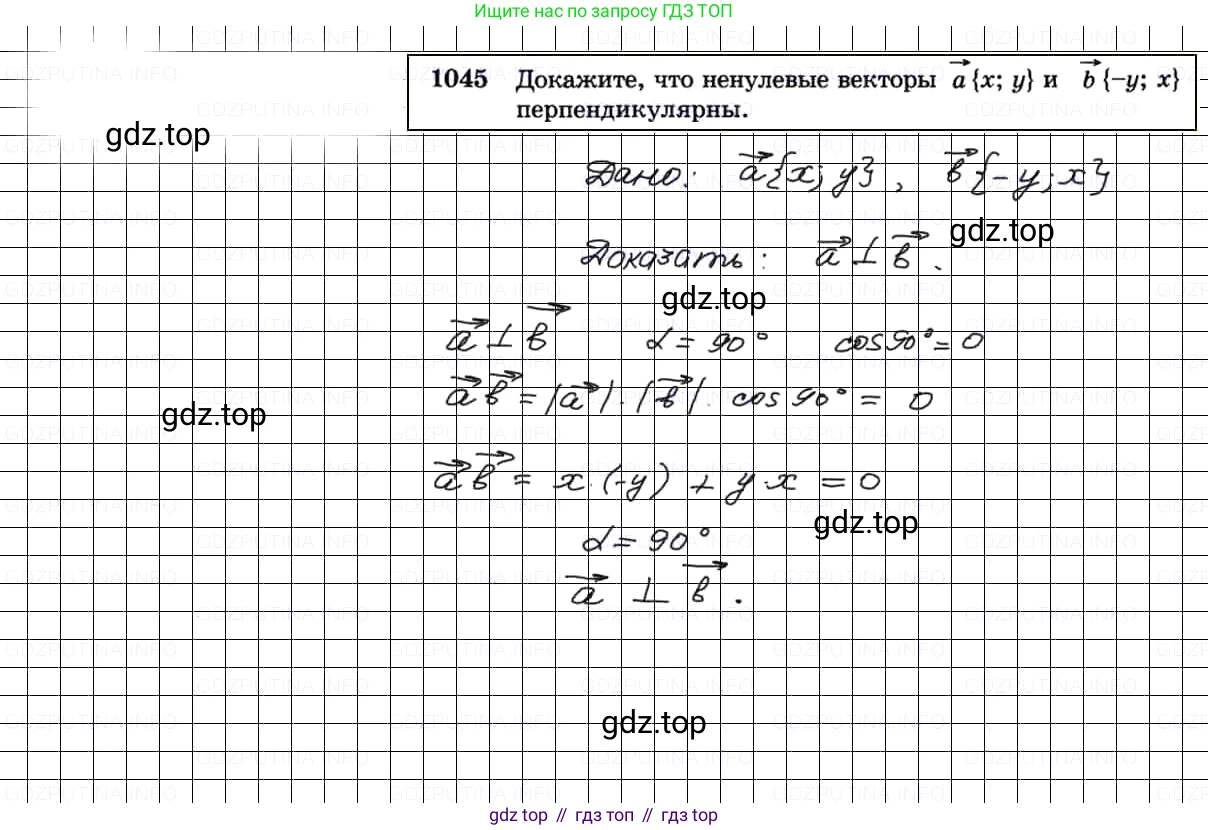 Ищите нас по запросу ГДЗ ТОП
1045 Докажите, что ненулевые векторы a⃗ {x; y} и b⃗ {–y; x}
перпендикулярны.
gdz.top
Дано: a⃗ {x; y}, b⃗ {-y; x}
gdz.top
Доказать: a⃗ ⊥ b⃗.
gdz.top
a⃗ ⊥ b⃗ α = 90° cos 90° = 0
a⃗ b⃗ = |a⃗| · |b⃗| · cos 90° = 0
gdz.top
a⃗ b⃗ = x · (-y) + y · x = 0
gdz.top
α = 90°
a⃗ ⊥ b⃗.
gdz.top
gdz top // гдз топ // гдз top
GDZPUTINA.INFO